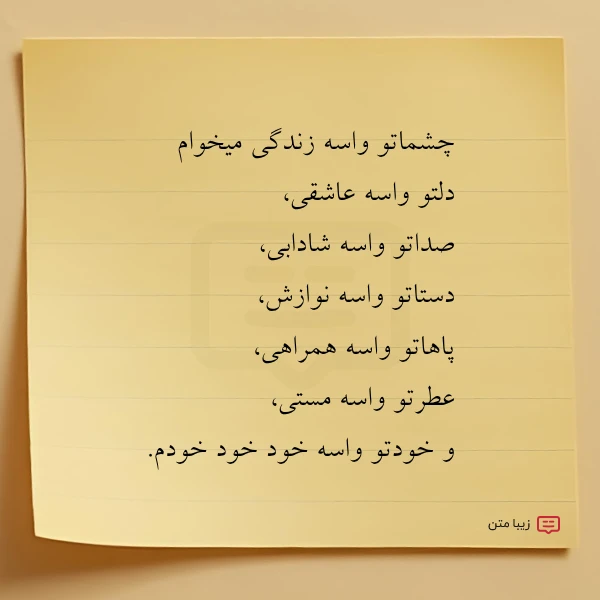 چشماتو واسه زندگی میخوام
دلتو واسه عاشقی،
صداتو واسه شادابی،
دستاتو واسه نوازش،
پاهاتو واسه همراهی،
عطرتو واسه مستی،
و خودتو واسه خود خود خودم.
زیبا متن